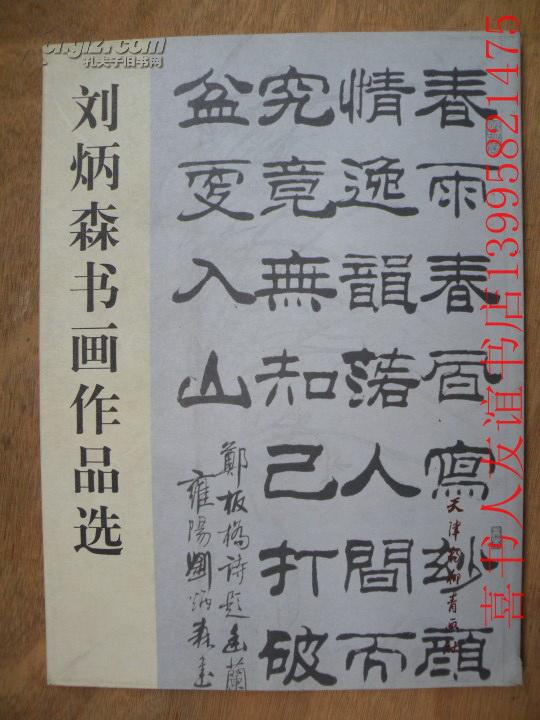 孔夫子旧书网
刘炳森书画作品选
春雨春風寫妙顏
情逸韻落人間而
究竟無知己打破
盆更入山
鄭板橋詩題幽蘭
雍陽劉炳森書
天津楊柳青画社
喜书人友谊书店13995821475